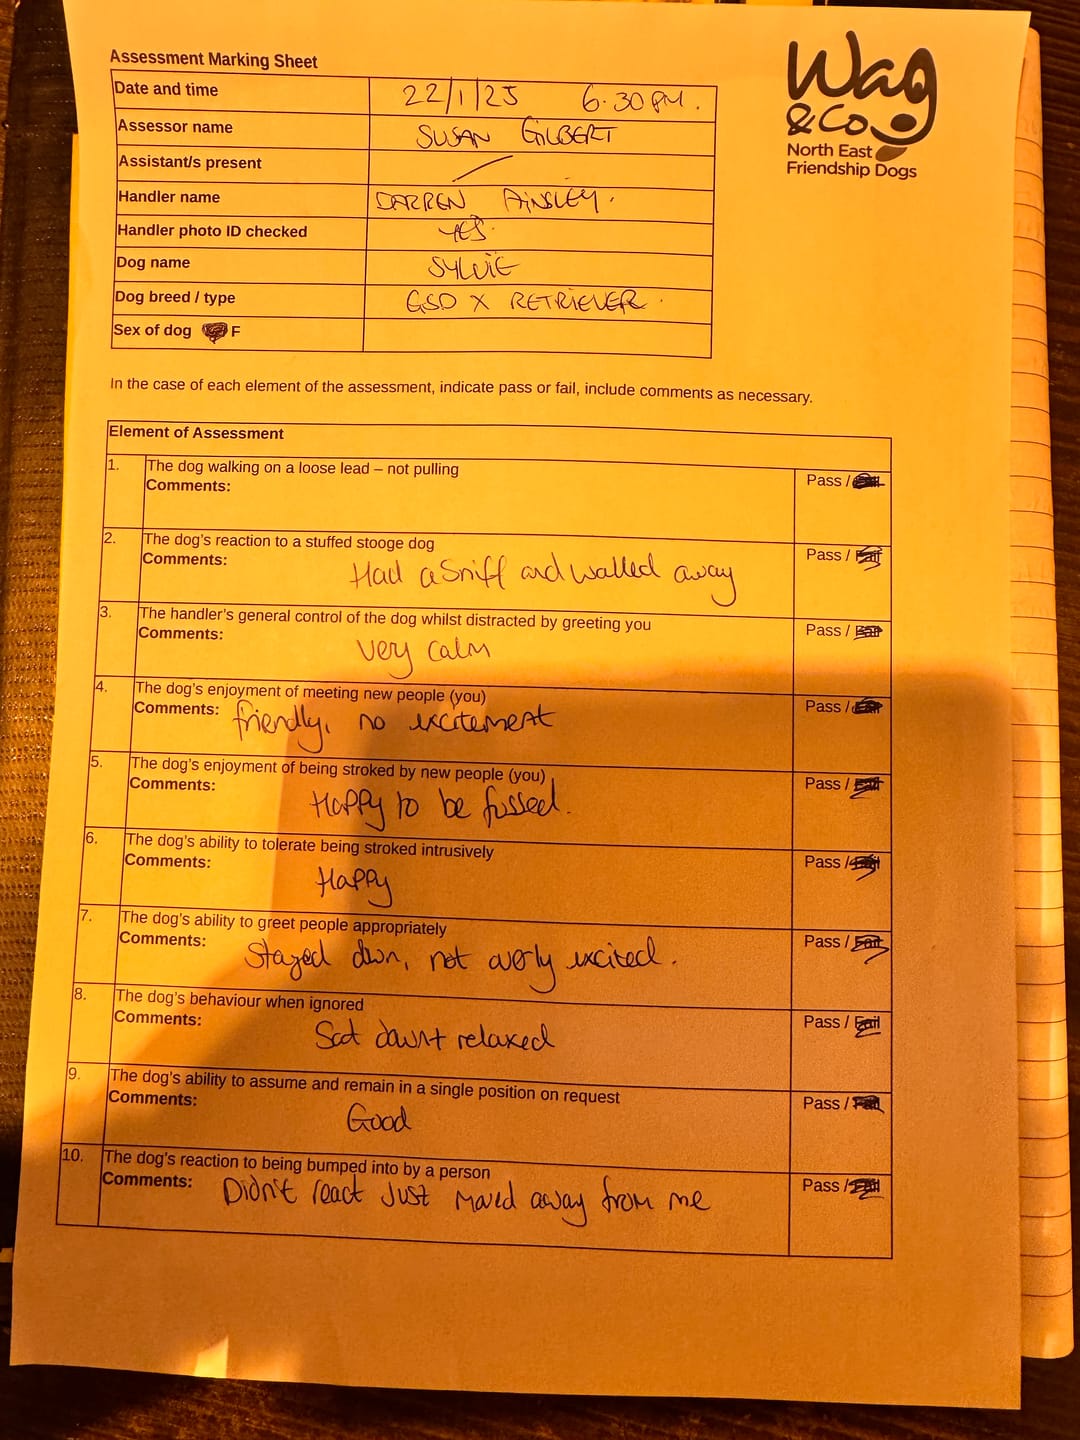 Assessment Marking Sheet
Wag
& Co
North East
Friendship Dogs
Date and time 22/1/25 6.30PM.
Assessor name SUSAN GILBERT
Assistant/s present /
Handler name DARREN AINSLEY.
Handler photo ID checked YES.
Dog name SYLVIE
Dog breed / type GSD X RETRIEVER.
Sex of dog F
In the case of each element of the assessment, indicate pass or fail, include comments as necessary.
Element of Assessment
1. The dog walking on a loose lead – not pulling Pass / Fail
Comments:
2. The dog's reaction to a stuffed stooge dog Pass / Fail
Comments: Had a sniff and walked away
3. The handler's general control of the dog whilst distracted by greeting you Pass / Fail
Comments: very calm
4. The dog's enjoyment of meeting new people (you) Pass / Fail
Comments: friendly, no excitement
5. The dog's enjoyment of being stroked by new people (you) Pass / Fail
Comments: Happy to be fussed.
6. The dog's ability to tolerate being stroked intrusively Pass / Fail
Comments: Happy
7. The dog's ability to greet people appropriately Pass / Fail
Comments: Stayed down, not overly excited.
8. The dog's behaviour when ignored Pass / Fail
Comments: Sat down + relaxed
9. The dog's ability to assume and remain in a single position on request Pass / Fail
Comments: Good
10. The dog's reaction to being bumped into by a person Pass / Fail
Comments: Didn't react Just moved away from me